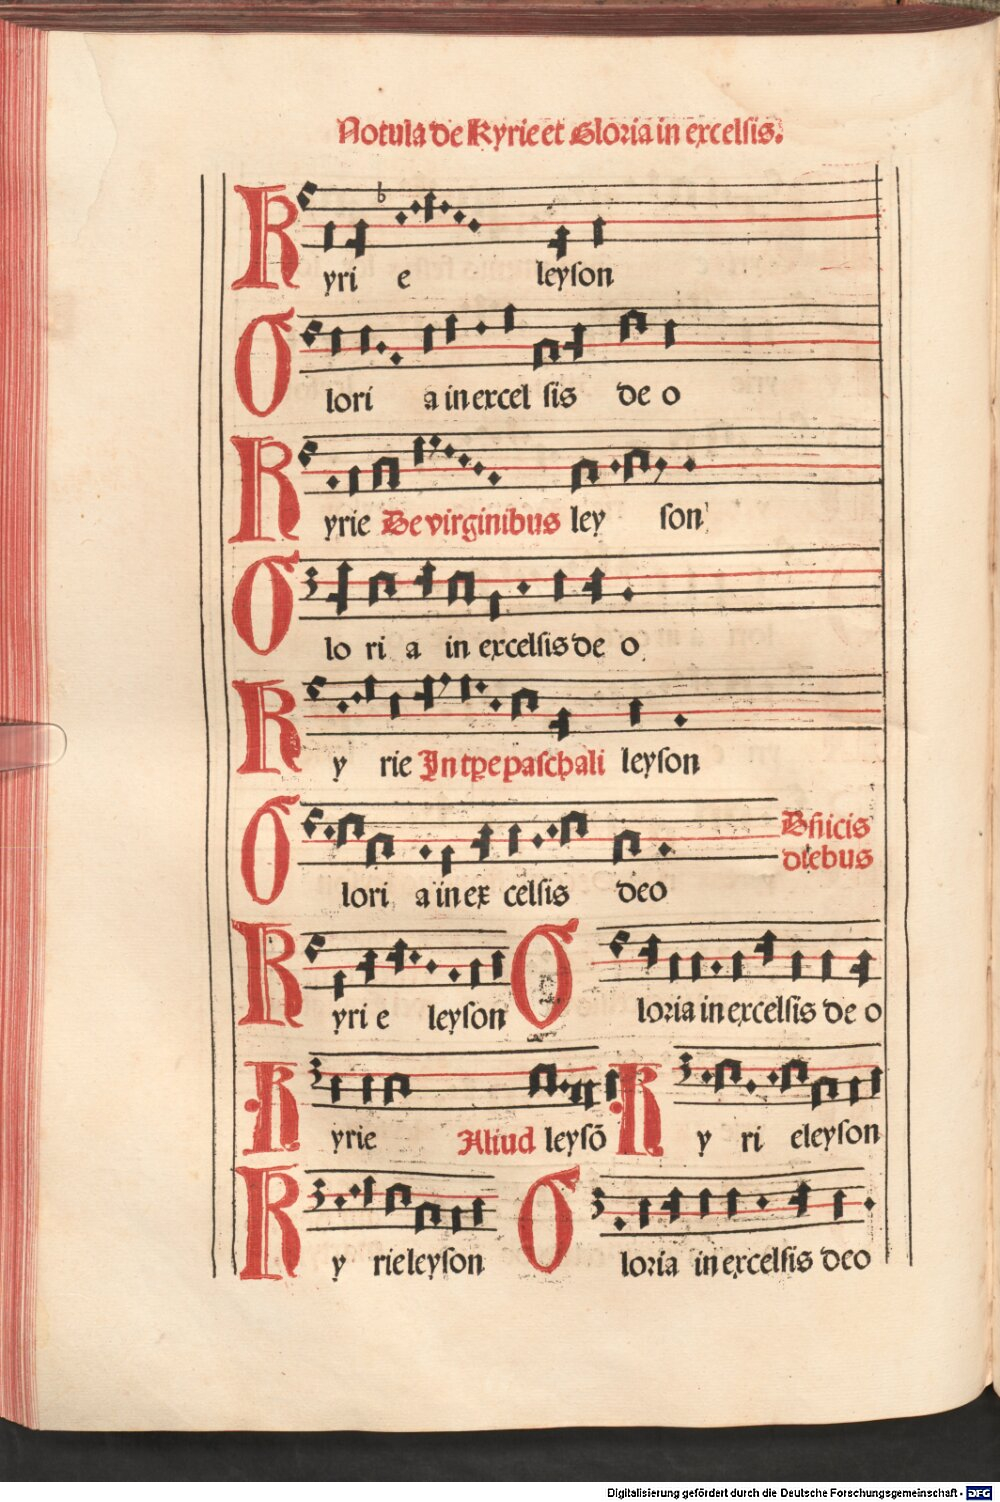 Notula de Kyrie et Gloria in excelsis.
Kyri e leyson
Glori a in excel sis de o
Kyrie De virginibus ley son
Glo ri a in excelsis de o
Ky rie In tp̄e paschali leyson
Glori a in ex celsis deo
Dn̄icis
diebus
Kyri e leyson Gloria in excelsis de o
Kyrie Aliud leysō Ky ri eleyson
Ky rieleyson Gloria in excelsis deo
Digitalisierung gefördert durch die Deutsche Forschungsgemeinschaft - DFG